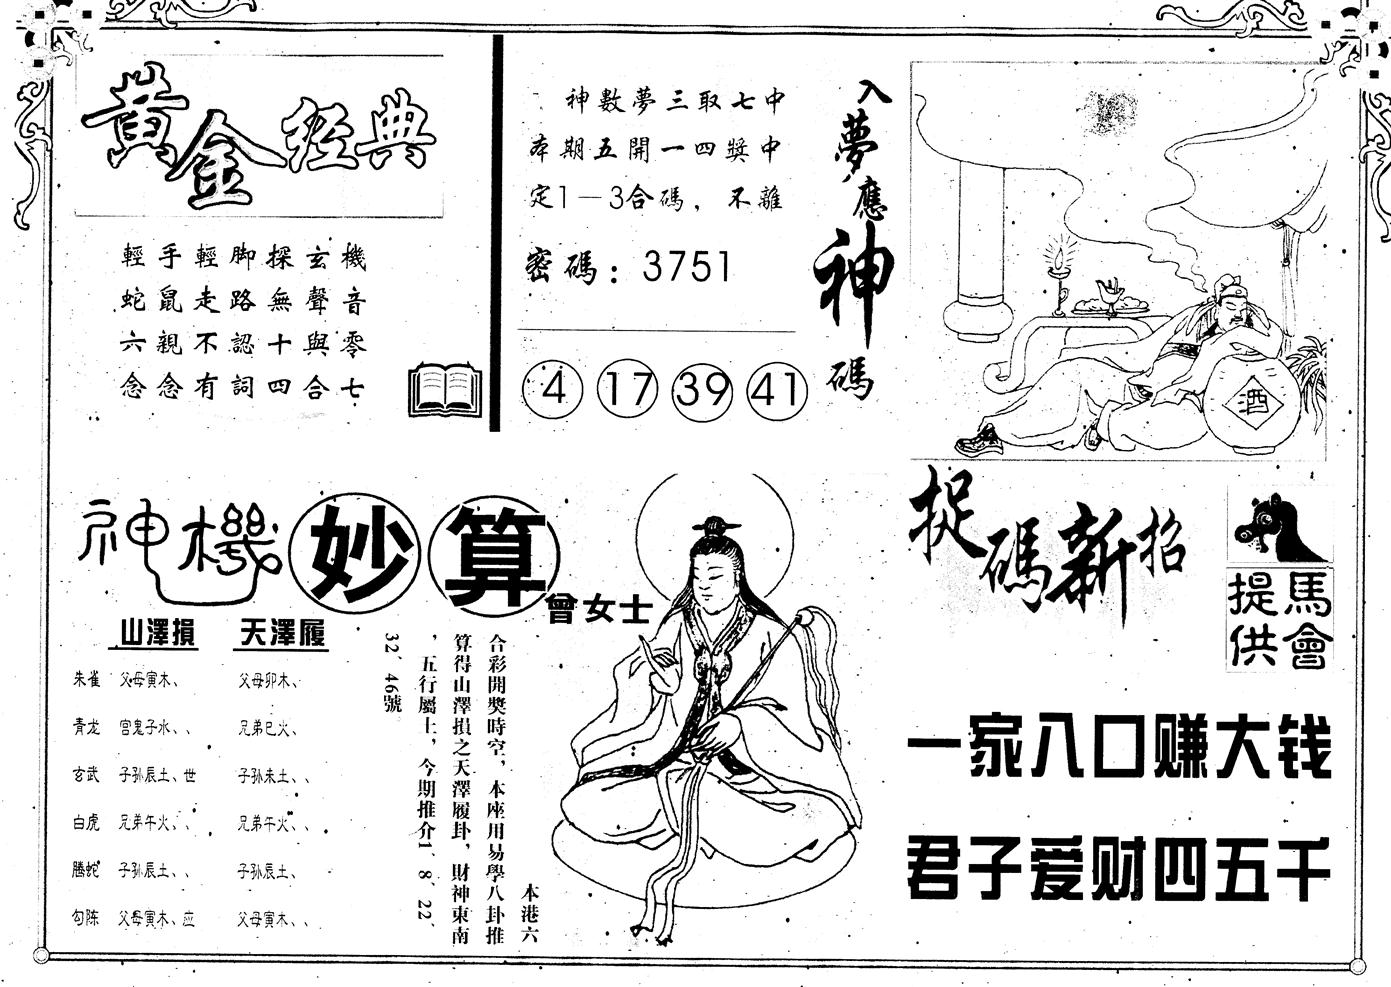 黃金經典
輕手輕脚探玄機
蛇鼠走路無聲音
六親不認十與零
念念有詞四合七
神數夢三取七中
本期五開一四獎中
定1－3合碼，不離
密碼：3751
4 17 39 41
入夢應神碼
酒
神機妙算
曾女士
山澤損 天澤履
朱雀 父母寅木、 父母卯木、
青龙 官鬼子水、、 兄弟巳火、
玄武 子孙辰土、世 子孙未土、、
白虎 兄弟午火、、 兄弟午火、、
腾蛇 子孙辰土、、 子孙辰土、
勾陈 父母寅木、应 父母寅木、、
本港六
合彩開獎時空，本座用易學八卦推
算得山澤損之天澤履卦，財神東南
，五行屬土，今期推介1、8、22、
32、46號
捉碼新招
馬會提供
一家八口赚大钱
君子爱财四五千